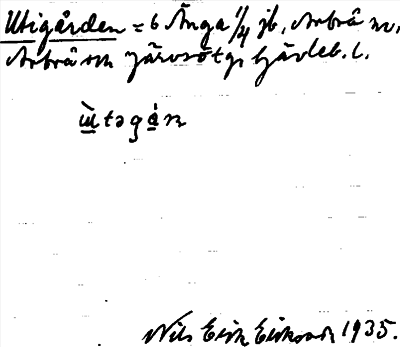 Utigården = 6 Änga 1/4 jb, Arbrå sn,
Arbrå sn Järvsö tg Gävleb. l.
ùtǝgán
Nils Erik Eriksson 1935.